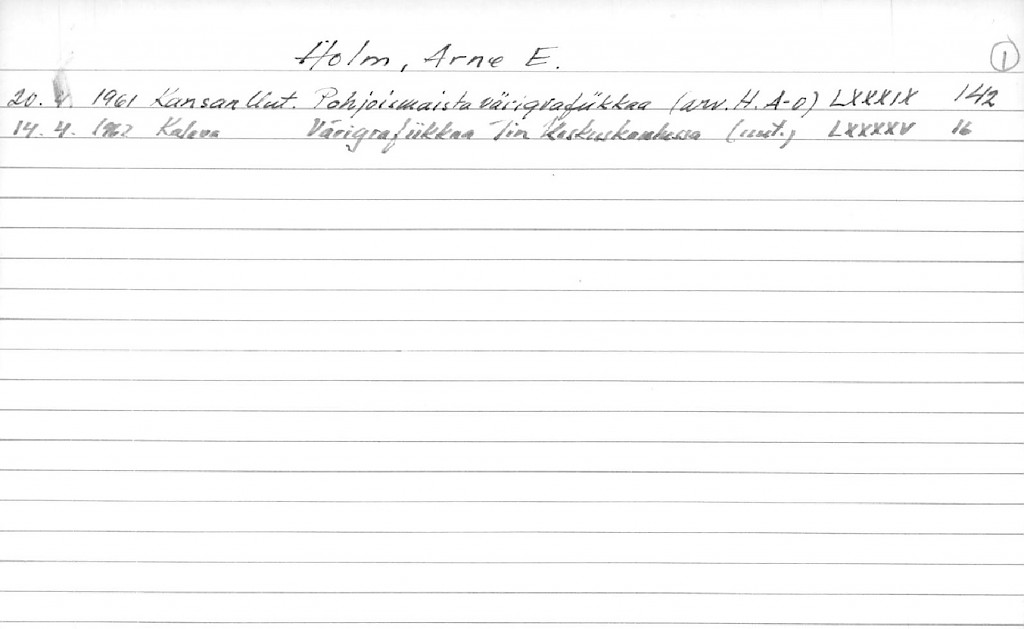 Holm, Arne E. 1
20. 4. 1961 Kansan Uut. Pohjoismaista värigrafiikkaa (arv. H. A-o) LXXXIX 142
14. 4. 1962 Kaleva Värigrafiikkaa Tin Keskuskoulussa (uut.) LXXXXV 16